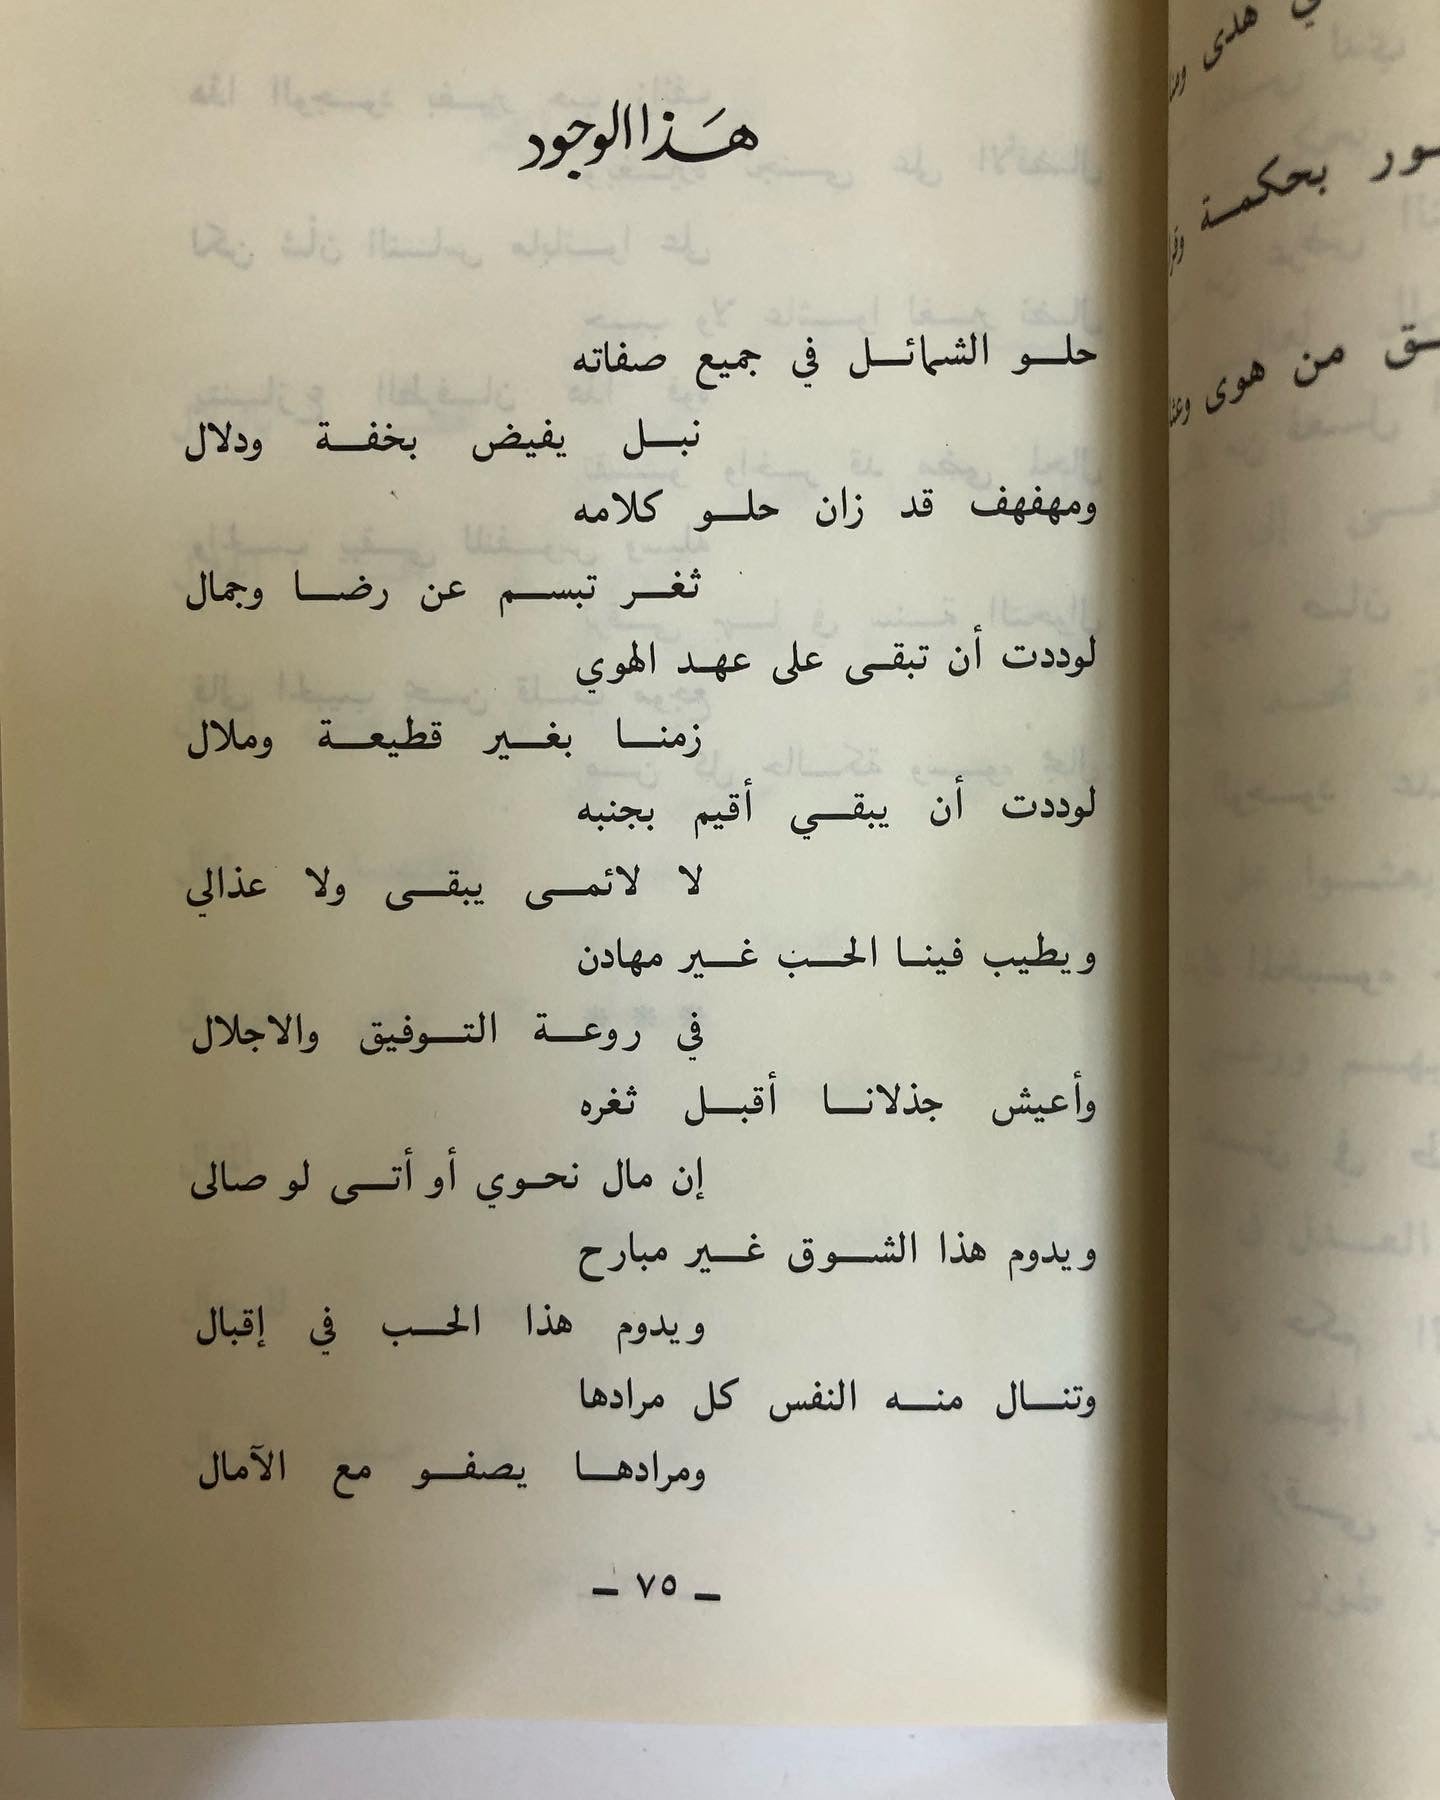 هذا الوجود
حلو الشمائل في جميع صفاته
نبل يفيض بخفة ودلال
ومهفهف قد زان حلو كلامه
ثغر تبسم عن رضا وجمال
لوددت أن تبقى على عهد الهوي
زمنا بغير قطيعة وملال
لوددت أن يبقي أقيم بجنبه
لا لائمى يبقى ولا عذالي
ويطيب فينا الحب غير مهادن
في روعة التوفيق والاجلال
وأعيش جذلانا أقبل ثغره
إن مال نحوي أو أتى لو صالى
ويدوم هذا الشوق غير مبارح
ويدوم هذا الحب في إقبال
وتنال منه النفس كل مرادها
ومرادها يصفو مع الآمال
ـ ٧٥ ـ
هدى
ور بحكمة
ق من هوى